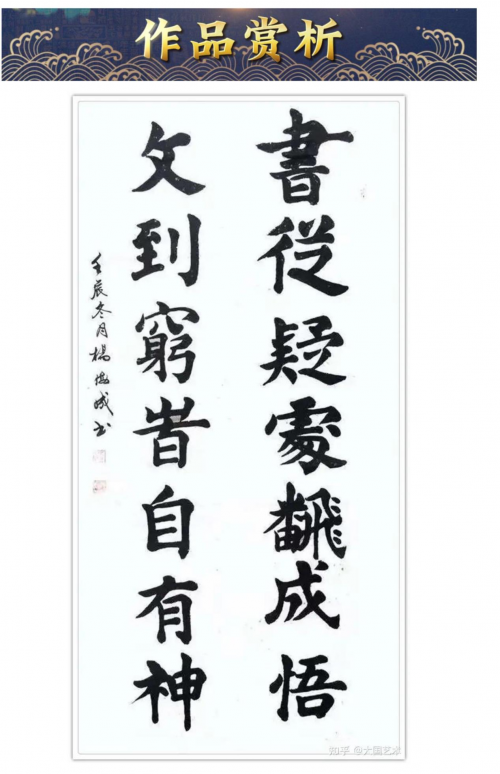 作品赏析
書從疑處飜成悟
文到窮旹自有神
壬辰冬月楊成书
知乎 @大国艺术